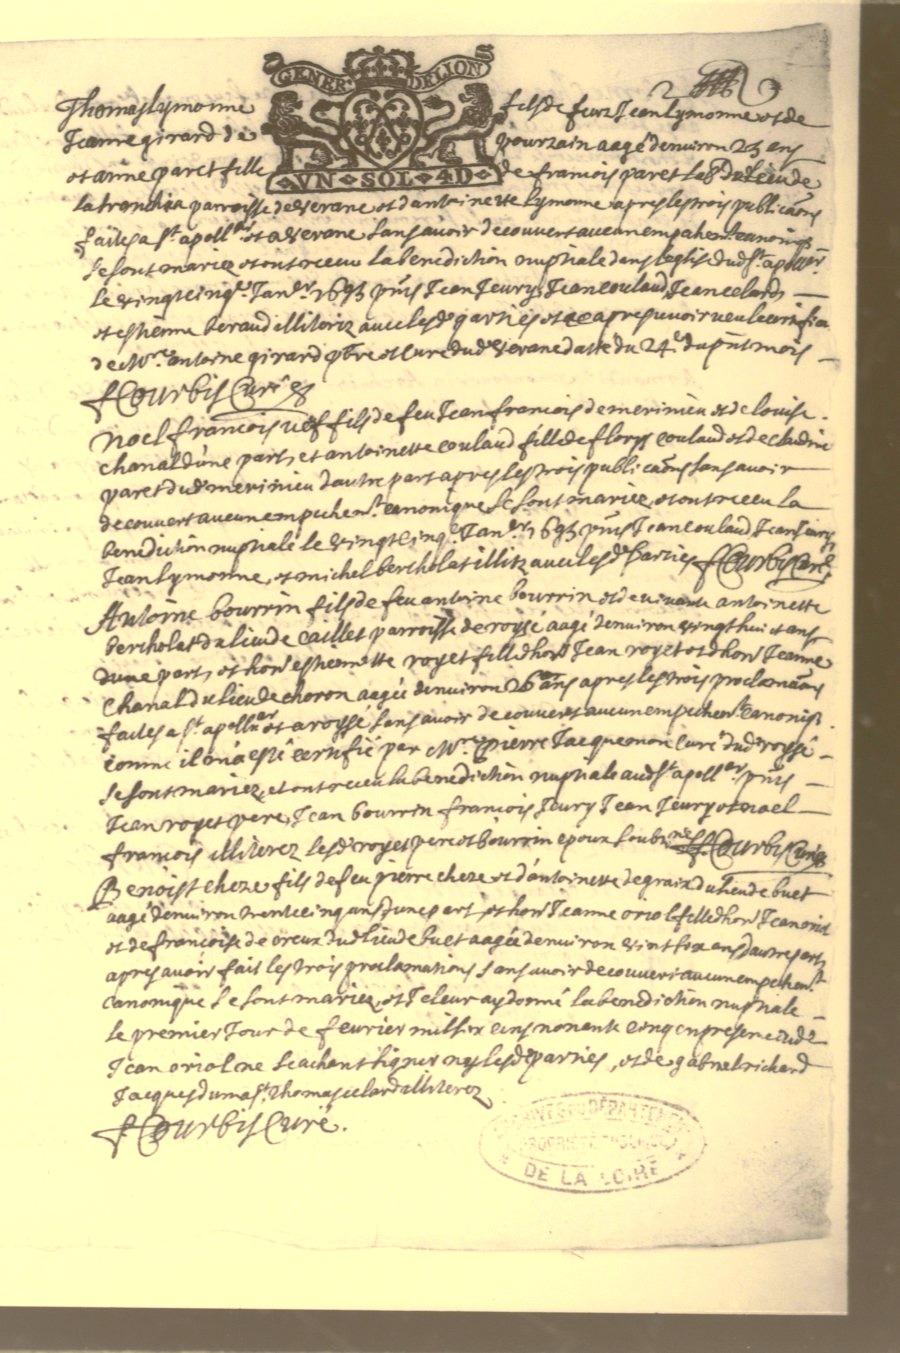 GENER DELION
VN SOL 4D
Thomas Lymonne fils de feuz Jean Lymonne et de
Jeanne girard de pourzain aagé denviron 23 ans
et anne paret fille de francois paret du lieu de
la tronchia parroisse de Verane et dantoinette lymonne apres les trois publicaons
faites a St apollr et a Verane sans avoir decouvert aucun empechent canoniq
se sont mariez et ont receu la benediction nuptiale dans leglise dud St apollr
le vingtcinqe Janer 1695 pnts Jean Jeury Jean coulaud Jean celard
et estienne beraud illiterez avec lesd parties et ce apres avoir veu le certifica
de Mre antoine girard pbre et curé dud Verane datté du 24e du pnt mois
f Courbis Curé
Noel francois vef fils de feu Jean francois de merinieu et de louise
chanal d'une part, et antoinette coulaud fille de flory coulaud et de claudine
paret dud merinieu dautre part apres les trois publicaons sans avoir
decouvert aucun empechent canonique se sont mariez et ont receu la
benediction nuptiale le vingtcinqe Janer 1695 pnts Jean coulaud Jean Jeury
Jean lymonne, et michel bertholat illitz avec lesd parties f Courbis Curé
Antoine bourrin fils de feu antoine bourrin et de vivante antoinette
bertholat du lieu de caillet parroisse de roysé aagé denviron vingt huict ans
dune part, et hone estiennette royet fille dhone Jean royet et dhone Jeanne
Chanal du lieu de choron aagée denviron 26 ans apres les trois proclamaons
faites a St apollr et a roysé sans avoir decouvert aucun empechent canoniq
comme il m'a esté certifié par Mre pierre Jacquemon curé dud roysé
se sont mariez, et ont receu la benediction nuptiale aud St apollr pnts
Jean royet pere, Jean bourrin francois Jeury Jean Jeury et noel
francois illiterez lesd royet pere et bourrin epoux soubznes f Courbis Curé
Benoist cheze fils de feu pierre cheze et d'antoinette degraix du lieu de buet
aagé denviron trente cinq ans d'une part et hone Jeanne oriol fille dhone Jean oriol
et de francoise de creux dud lieu de buet aagée denviron vint six ans d'autre part,
apres avoir fait les trois proclamations sans avoir decouvert aucun empechent
canonique se sont mariez, et Je leur ay donné la benediction nuptiale
le premier Jour de fevrier mil six cens nonante cinq en presence de
Jean oriol ne scachant signer ny lesd parties, et de gabriel richard
Jacques dumast Thomas celard illiterez
f Courbis Curé.
ARCHIVES DU DÉPARTEMENT
PROPRIÉTÉ PUBLIQUE
DE LA LOIRE